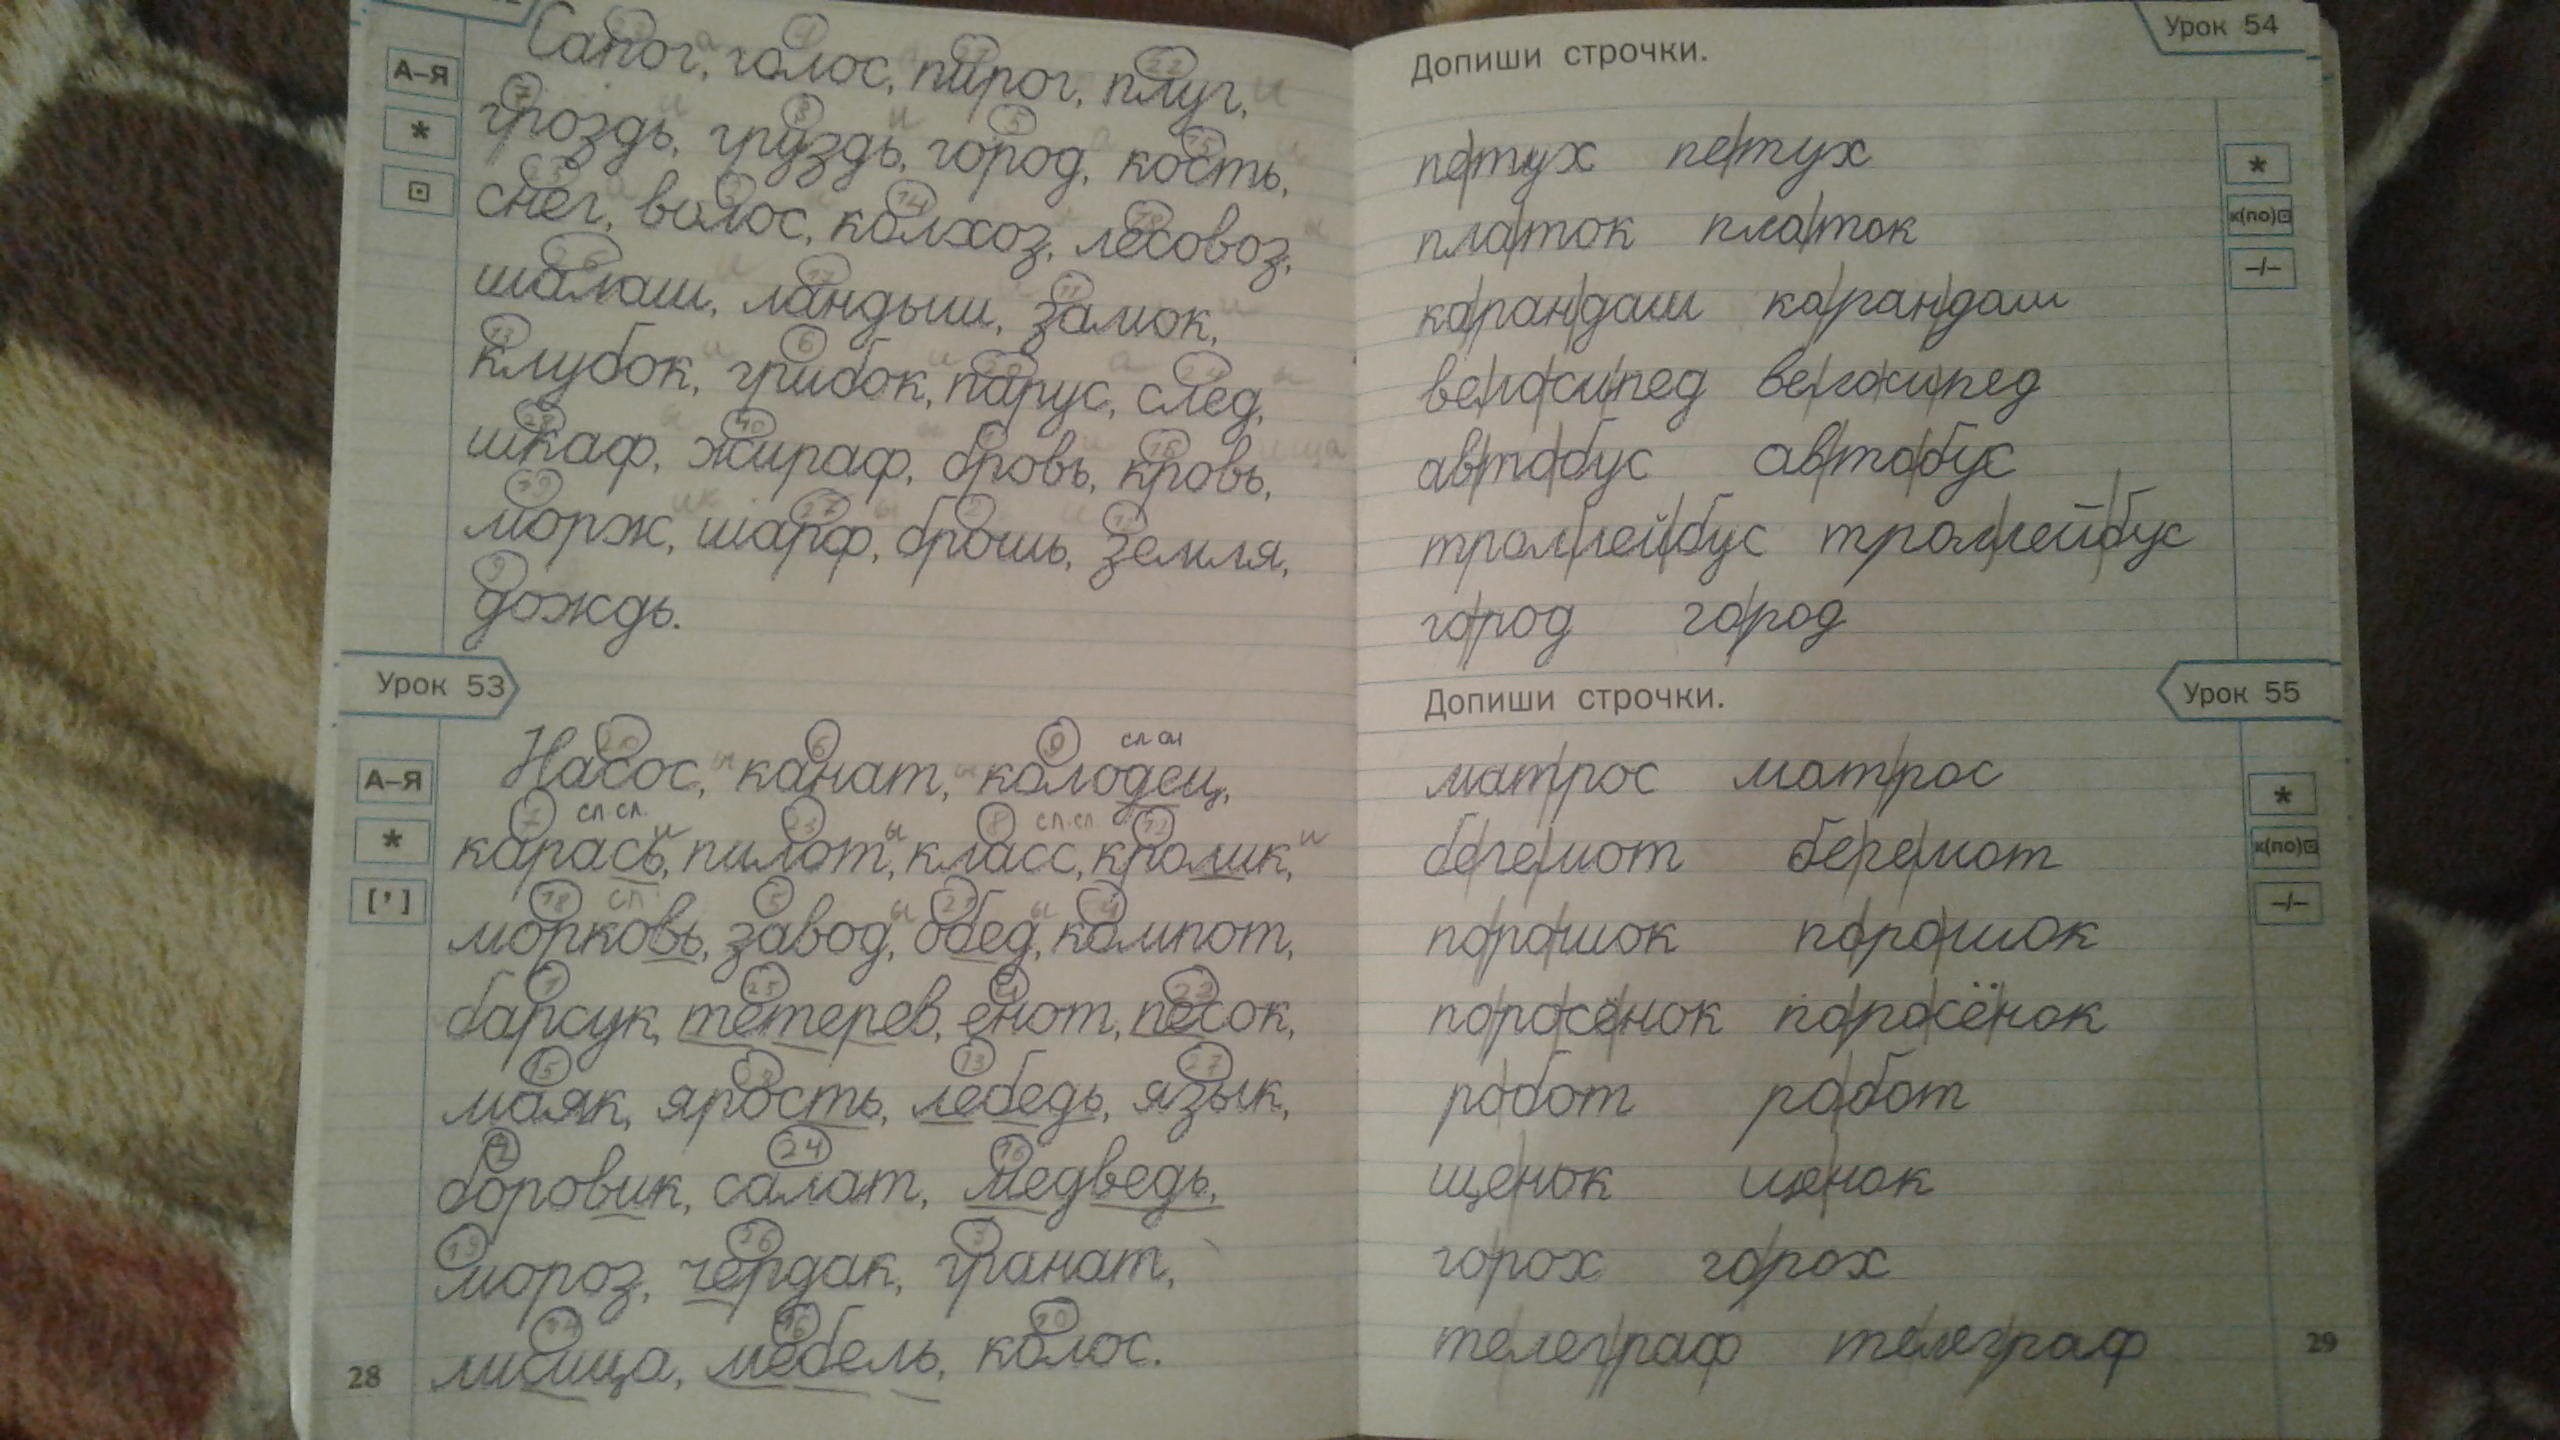 А–Я
*
Сапог, голос, пирог, плуг,
гроздь, груздь, город, кость,
снег, волос, колхоз, лесовоз,
шалаш, ландыш, замок,
клубок, грибок, парус, след,
шкаф, жираф, бровь, кровь,
морж, шарф, брошь, земля,
дождь.
Урок 53
А–Я
*
[ ' ]
Насос, канат, колодец,
карась, пилот, класс, кролик,
морковь, завод, обед, компот,
барсук, тетерев, енот, песок,
маяк, ярость, лебедь, язык,
боровик, салат, медведь,
мороз, чердак, гранат,
лисица, мебель, колос.
28
Урок 54
Допиши строчки.
*
к(по)⊡
–/–
пе/тух пе/тух
пла/ток пла/ток
ка/ран/даш ка/ран/даш
ве/ло/си/пед ве/ло/си/пед
ав/то/бус ав/то/бус
трол/лей/бус трол/лей/бус
го/род го/род
Урок 55
Допиши строчки.
*
к(по)⊡
–/–
мат/рос мат/рос
бе/ге/мот бе/ге/мот
по/ро/шок по/ро/шок
по/ро/сё/нок по/ро/сё/нок
ро/бот ро/бот
ще/нок ще/нок
го/рох го/рох
те/лег/раф те/лег/раф
29